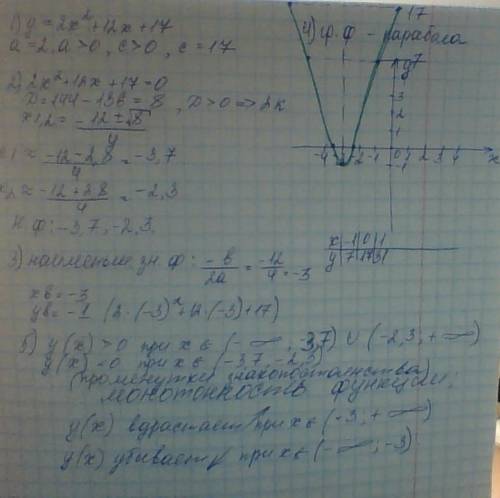 1) y = 2x² + 12x + 17
a = 2, a > 0, c > 0, c = 17
2) 2x² + 12x + 17 = 0
D = 144 - 136 = 8, D > 0 => 2к
x1,2 = (-12 ± √8)/4
x1 ≈ (-12 - 2,8)/4 = -3,7
x2 ≈ (-12 + 2,8)/4 = -2,3
н. ф: -3,7, -2,3.
3) наименьше зн. ф: -b/2a = -12/4 = -3
xв = -3
yв = -1 (2·(-3)² + 12·(-3) + 17)
4) гр. ф - парабола
17
y 7
3
2
1
-4 -2 -1 0 1 2 3 4 x
-1
x -1 0 1
y 7 17 31
5) y(x) > 0 при x ∈ (-∞, -3,7) ∪ (-2,3, +∞)
y(x) < 0 при x ∈ (-3,7, -2,3)
(промежутки знакопостоянства)
монотонность функции:
y(x) вдрастает при x ∈ (-3, +∞)
y(x) убывает при x ∈ (-∞, -3)